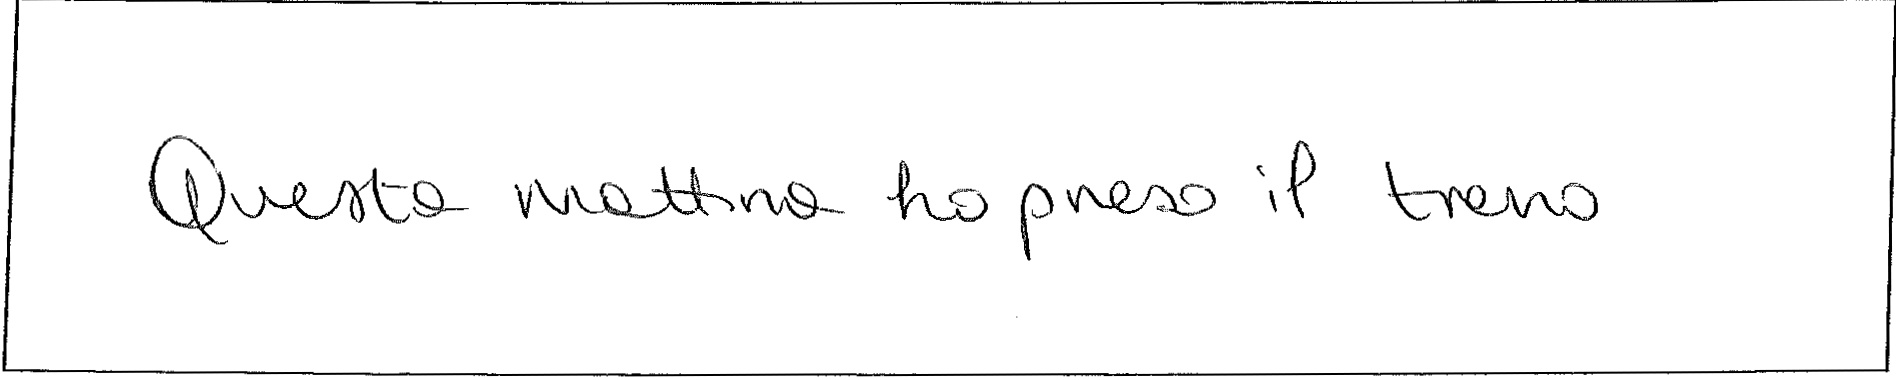 Questa mattina ho preso il treno